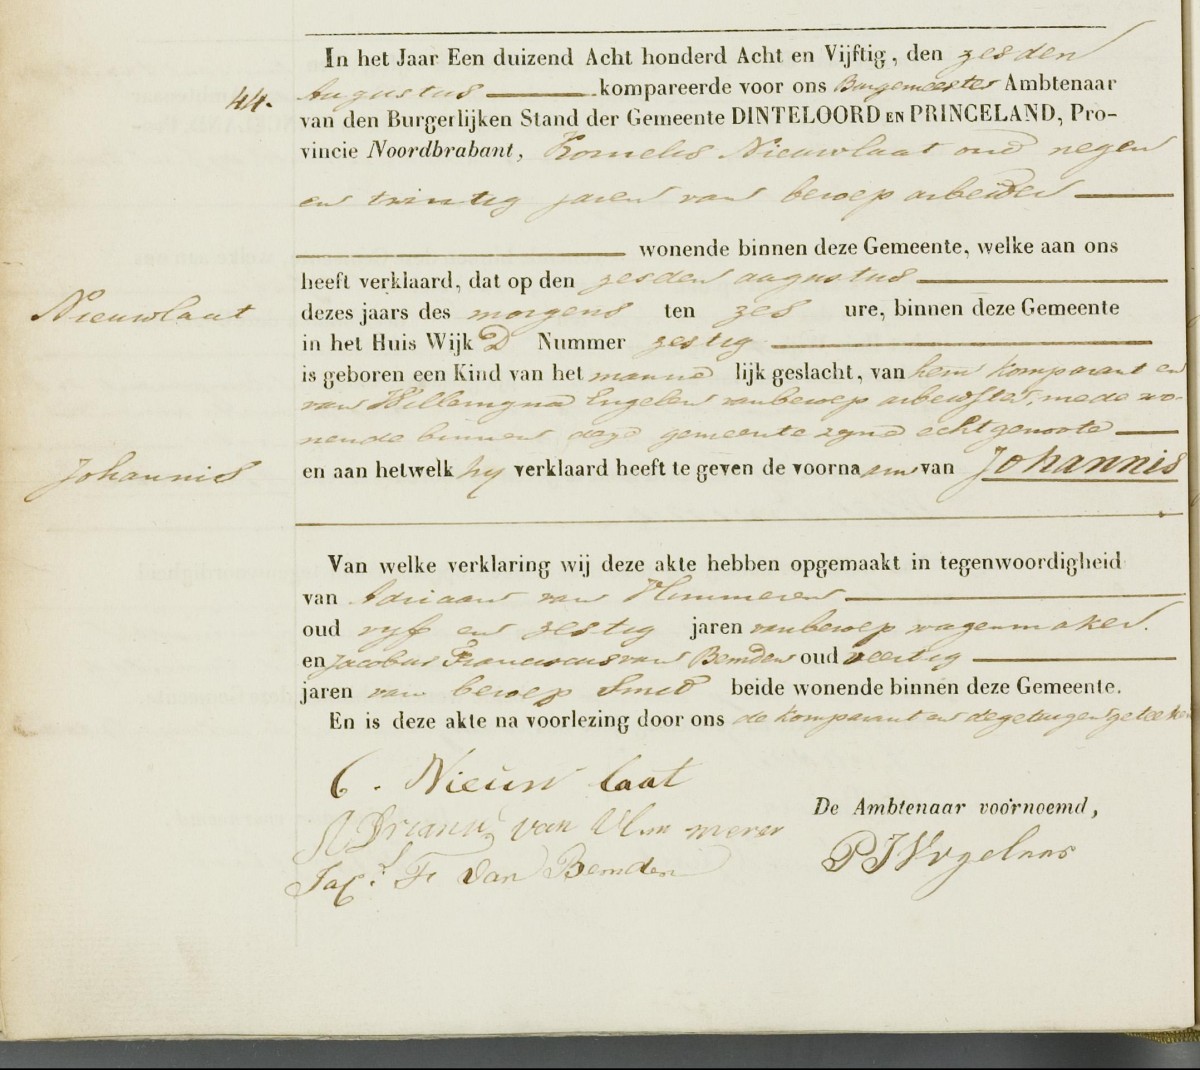 In het Jaar Een duizend Acht honderd Acht en Vijftig, den zesden
44. Augustus kompareerde voor ons Burgemeester Ambtenaar
van den Burgerlijken Stand der Gemeente DINTELOORD EN PRINCELAND, Pro-
vincie Noordbrabant, Kornelis Nieuwlaat oud negen
en twintig jaren van beroep arbeider
wonende binnen deze Gemeente, welke aan ons
heeft verklaard, dat op den zesden augustus
Nieuwlaat
dezes jaars des morgens ten zes ure, binnen deze Gemeente
in het Huis Wijk D Nummer zestig
is geboren een Kind van het manne lijk geslacht, van hem komparant en
van Willemyna Engelen van beroep arbeidster, mede wo-
nende binnen deze gemeente zyne echtgenoote
Johannis
en aan hetwelk hy verklaard heeft te geven de voorna am van Johannis
Van welke verklaring wij deze akte hebben opgemaakt in tegenwoordigheid
van Adriaan van Vlimmeren
oud vyf en zestig jaren van beroep wagenmaker.
en Jacobus Franciscus van Bemden oud veertig
jaren van beroep Smid beide wonende binnen deze Gemeente.
En is deze akte na voorlezing door ons de komparant en de getuigen geteeken
C. Nieuw laat
De Ambtenaar voornoemd,
Adriaan van Vlim meren
P J Vogelaar
Jac. Fr van Bemden